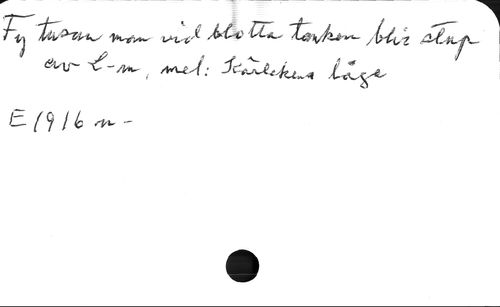 Fy tusan man vid blotta tanken blir stup
av L-m, mel: Kärlekens låge
E 1916 n -